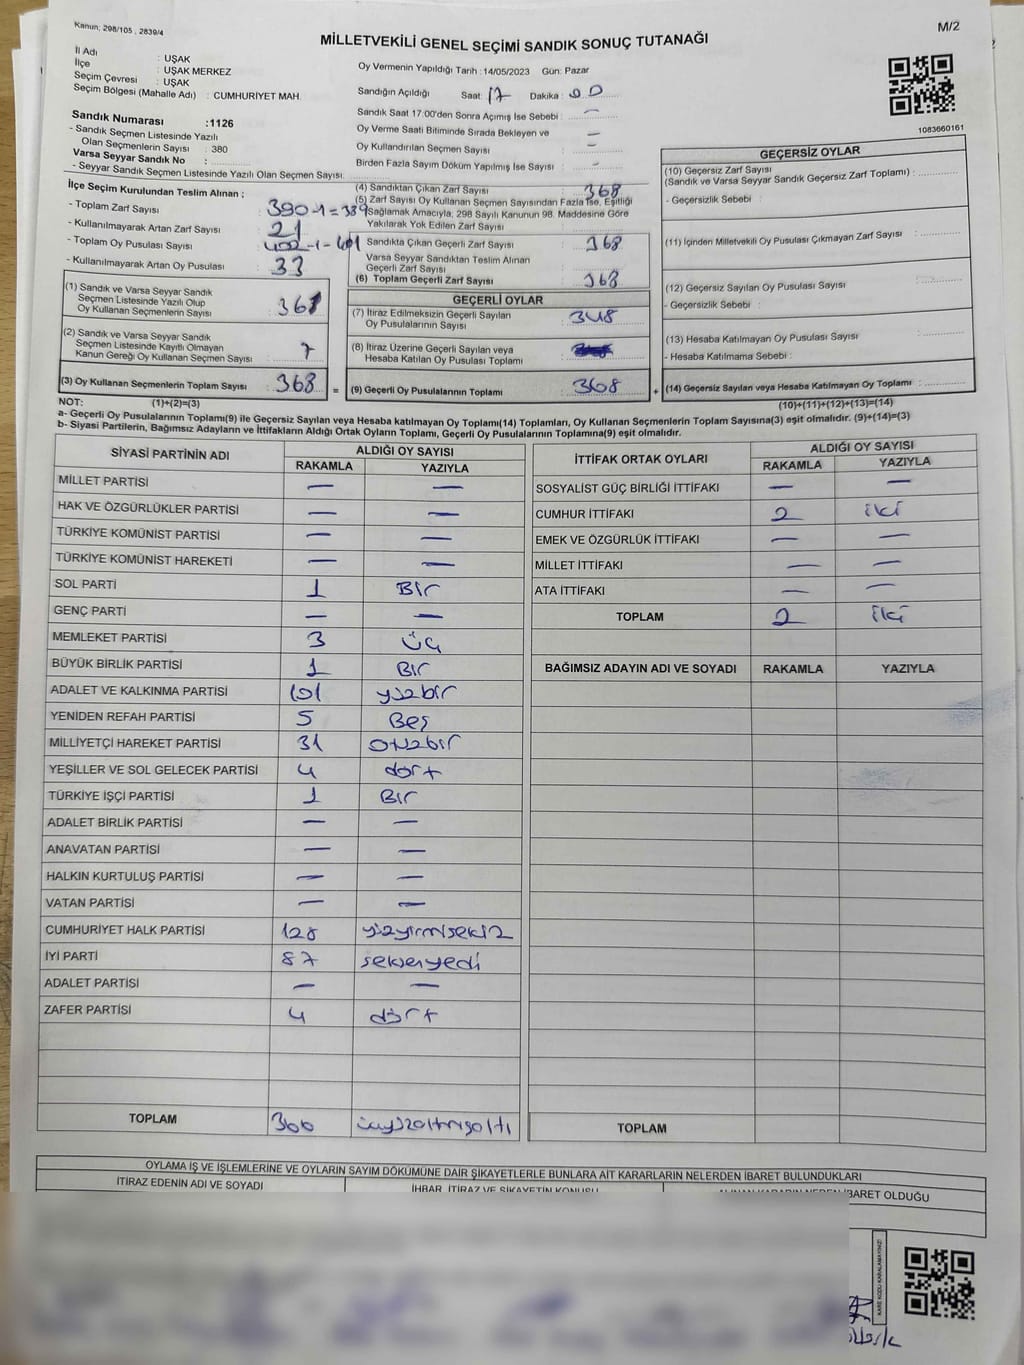 Kanun; 298/105 , 2839/4
M/2
MİLLETVEKİLİ GENEL SEÇİMİ SANDIK SONUÇ TUTANAĞI
İl Adı : UŞAK
İlçe : UŞAK MERKEZ
Seçim Çevresi : UŞAK
Seçim Bölgesi (Mahalle Adı) : CUMHURİYET MAH.
Sandık Numarası :1126
- Sandık Seçmen Listesinde Yazılı
Olan Seçmenlerin Sayısı : 380
Varsa Seyyar Sandık No :
- Seyyar Sandık Seçmen Listesinde Yazılı Olan Seçmen Sayısı:
Oy Vermenin Yapıldığı Tarih :14/05/2023 Gün: Pazar
Sandığın Açıldığı Saat: 17 Dakika: 00
Sandık Saat 17:00'den Sonra Açımış İse Sebebi : —
Oy Verme Saati Bitiminde Sırada Bekleyen ve —
Oy Kullandırılan Seçmen Sayısı : —
Birden Fazla Sayım Döküm Yapılmış İse Sayısı : –
1083660161
İlçe Seçim Kurulundan Teslim Alınan ;
- Toplam Zarf Sayısı : 390-1=389
- Kullanılmayarak Artan Zarf Sayısı : 21
- Toplam Oy Pusulası Sayısı : 402-1-401
- Kullanılmayarak Artan Oy Pusulası : 33
(1) Sandık ve Varsa Seyyar Sandık
Seçmen Listesinde Yazılı Olup
Oy Kullanan Seçmenlerin Sayısı : 361
(2) Sandık ve Varsa Seyyar Sandık
Seçmen Listesinde Kayıtlı Olmayan
Kanun Gereği Oy Kullanan Seçmen Sayısı : 7
(3) Oy Kullanan Seçmenlerin Toplam Sayısı : 368 =
(4) Sandıktan Çıkan Zarf Sayısı : 368
(5) Zarf Sayısı Oy Kullanan Seçmen Sayısından Fazla İse, Eşitliği
Sağlamak Amacıyla, 298 Sayılı Kanunun 98. Maddesine Göre
Yakılarak Yok Edilen Zarf Sayısı :
Sandıkta Çıkan Geçerli Zarf Sayısı : 368
Varsa Seyyar Sandıktan Teslim Alınan
Geçerli Zarf Sayısı :
(6) Toplam Geçerli Zarf Sayısı : 368
GEÇERLİ OYLAR
(7) İtiraz Edilmeksizin Geçerli Sayılan
Oy Pusulalarının Sayısı : 348
(8) İtiraz Üzerine Geçerli Sayılan veya
Hesaba Katılan Oy Pusulası Toplamı :
(9) Geçerli Oy Pusulalarının Toplamı : 368 +
GEÇERSİZ OYLAR
(10) Geçersiz Zarf Sayısı
(Sandık ve Varsa Seyyar Sandık Geçersiz Zarf Toplamı) :
- Geçersizlik Sebebi :
(11) İçinden Milletvekili Oy Pusulası Çıkmayan Zarf Sayısı :
(12) Geçersiz Sayılan Oy Pusulası Sayısı :
- Geçersizlik Sebebi :
(13) Hesaba Katılmayan Oy Pusulası Sayısı :
- Hesaba Katılmama Sebebi :
(14) Geçersiz Sayılan veya Hesaba Katılmayan Oy Toplamı :
NOT: (1)+(2)=(3)
(10)+(11)+(12)+(13)=(14)
a- Geçerli Oy Pusulalarının Toplamı(9) ile Geçersiz Sayılan veya Hesaba katılmayan Oy Toplamı(14) Toplamları, Oy Kullanan Seçmenlerin Toplam Sayısına(3) eşit olmalıdır. (9)+(14)=(3)
b- Siyasi Partilerin, Bağımsız Adayların ve İttifakların Aldığı Ortak Oyların Toplamı, Geçerli Oy Pusulalarının Toplamına(9) eşit olmalıdır.
SİYASİ PARTİNİN ADI ALDIĞI OY SAYISI
RAKAMLA YAZIYLA
MİLLET PARTİSİ — —
HAK VE ÖZGÜRLÜKLER PARTİSİ — —
TÜRKİYE KOMÜNİST PARTİSİ — —
TÜRKİYE KOMÜNİST HAREKETİ — —
SOL PARTİ 1 Bir
GENÇ PARTİ — —
MEMLEKET PARTİSİ 3 üç
BÜYÜK BİRLİK PARTİSİ 1 Bir
ADALET VE KALKINMA PARTİSİ 101 yüzbir
YENİDEN REFAH PARTİSİ 5 Beş
MİLLİYETÇİ HAREKET PARTİSİ 31 otuzbir
YEŞİLLER VE SOL GELECEK PARTİSİ 4 dört
TÜRKİYE İŞÇİ PARTİSİ 1 Bir
ADALET BİRLİK PARTİSİ — —
ANAVATAN PARTİSİ — —
HALKIN KURTULUŞ PARTİSİ — —
VATAN PARTİSİ — —
CUMHURİYET HALK PARTİSİ 128 yüzyirmisekiz
İYİ PARTİ 87 seksenyedi
ADALET PARTİSİ — —
ZAFER PARTİSİ 4 dört
TOPLAM 366 üçyüzaltmışaltı
İTTİFAK ORTAK OYLARI ALDIĞI OY SAYISI
RAKAMLA YAZIYLA
SOSYALİST GÜÇ BİRLİĞİ İTTİFAKI — —
CUMHUR İTTİFAKI 2 iki
EMEK VE ÖZGÜRLÜK İTTİFAKI — —
MİLLET İTTİFAKI — —
ATA İTTİFAKI — —
TOPLAM 2 iki
BAĞIMSIZ ADAYIN ADI VE SOYADI RAKAMLA YAZIYLA
TOPLAM
OYLAMA İŞ VE İŞLEMLERİNE VE OYLARIN SAYIM DÖKÜMÜNE DAİR ŞİKAYETLERLE BUNLARA AİT KARARLARIN NELERDEN İBARET BULUNDUKLARI
İTİRAZ EDENİN ADI VE SOYADI
İHBAR, İTİRAZ VE ŞİKAYETİN KONUSU
ALINAN KARARIN NEDEN İBARET OLDUĞU
KARE KODU KARALAMAYINIZ!